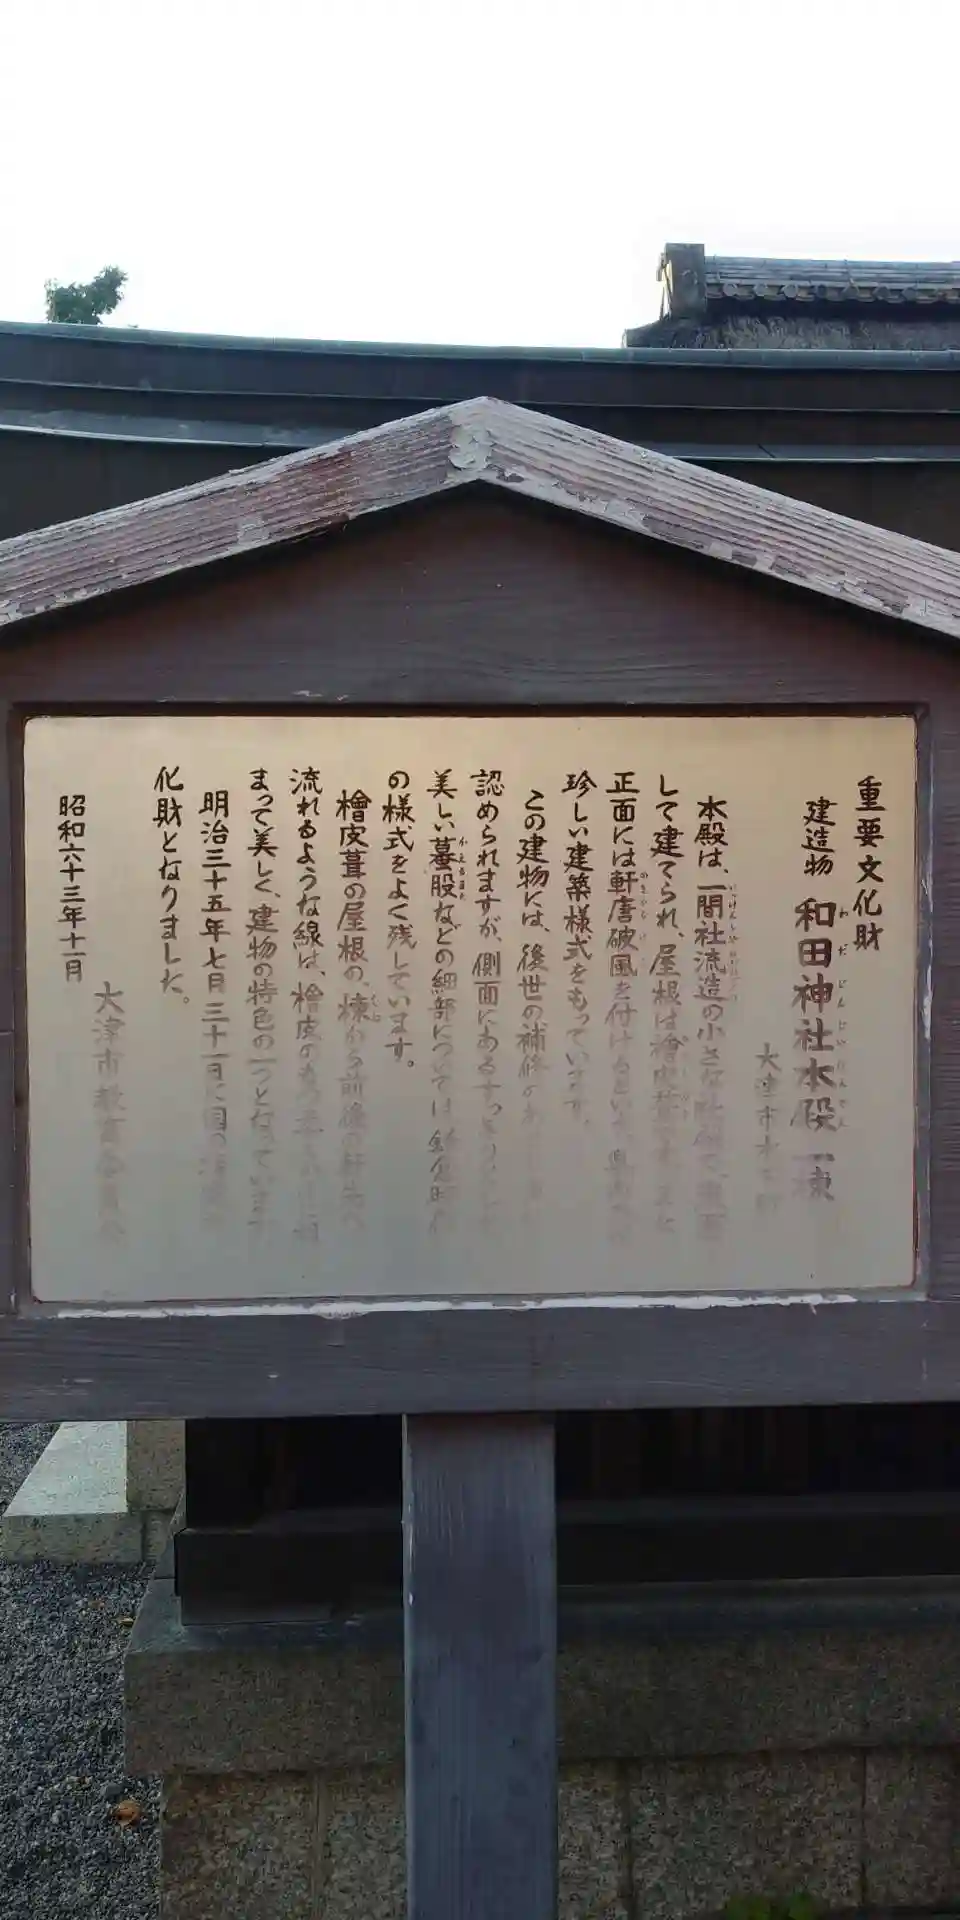 重要文化財
建造物 和田神社本殿 一棟
わだじんじゃほんでん
大津市木下町
本殿は、一間社流造の小さな社殿で、
して建てられ、屋根は檜皮葺
正面には軒唐破風を付けるという、
のきからはふ
珍しい建築様式をもっています。
この建物には、後世の補修のあ
認められますが、側面にあるすっきりとした
美しい蟇股などの細部については、鎌倉時代
かえるまた
の様式をよく残しています。
檜皮葺の屋根の、棟から前後の軒先へ
流れるような線は、檜皮の
まって美しく、建物の特色の一つとなっています。
明治三十五年七月三十一日に国の
化財となりました。
大津市教育委員会
昭和六十三年十一月